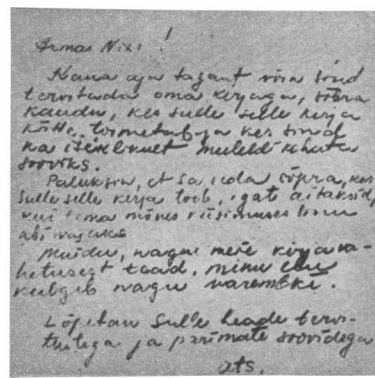 Armas Nixi!
Kaua aja tagant võin sind
tervitada oma kirjaga, sõbra
kaudu, kes sulle selle kirja
kätte toimetab ja kes sind
ka isiklikult meleldi
sooviks.
Paluksin, et sa seda sõpra, kes
sulle selle kirja toob, igati aitaksid,
kui tema mõnes küsimuses sinu
abi vajaks
Muidu, nagu meie kirjava-
hetusest tead, minu elu
veibgib nagu varemgi.
Lõpetan Sulle heade tervi-
tustega ja parimate soovidega
Ats.